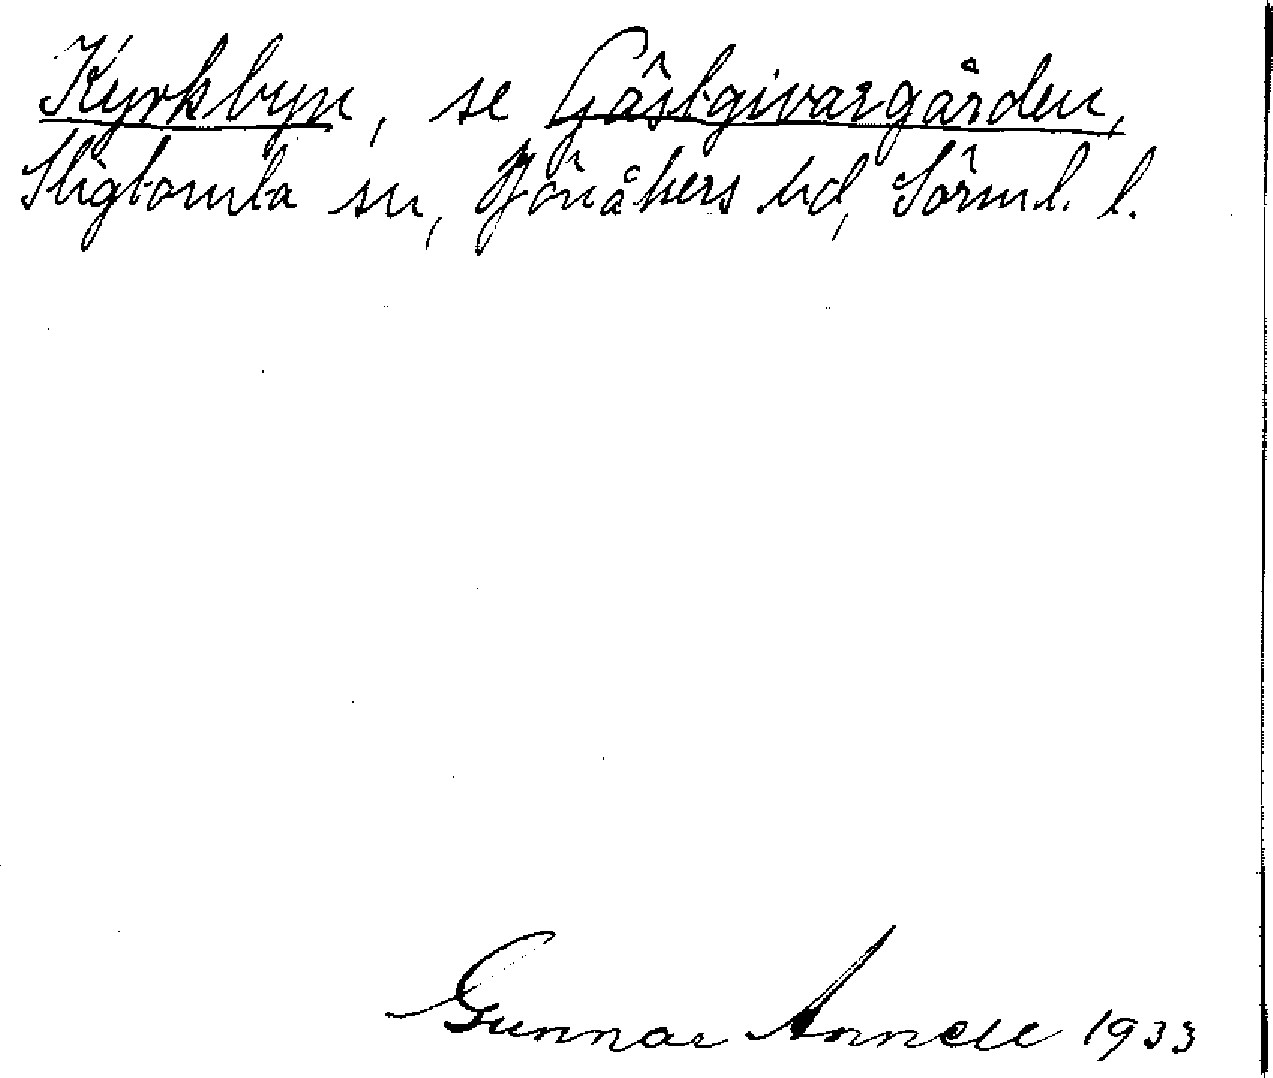 Kyrkbyn, se Gästgivargården,
Stigtomta sn, Jönåkers hd, Sörml. l.
Gunnar Annell 1933